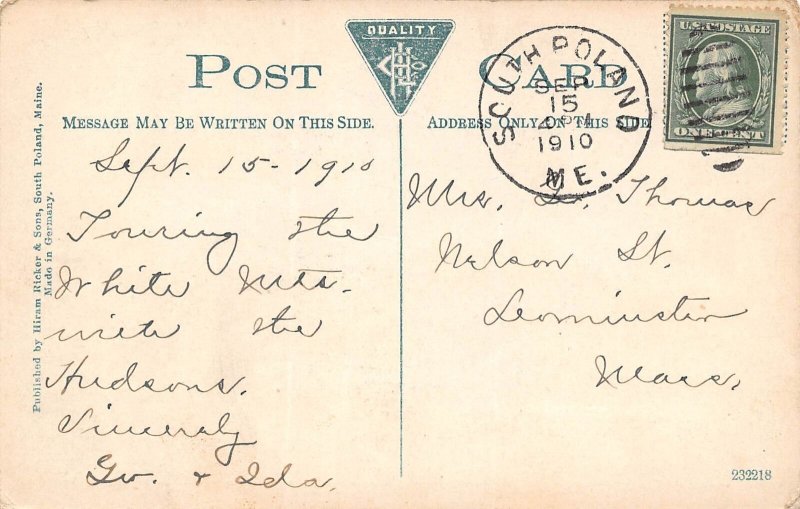 QUALITY
POST CARD
MESSAGE MAY BE WRITTEN ON THIS SIDE.
ADDRESS ONLY ON THIS SIDE
Published by Hiram Ricker & Sons, South Poland, Maine.
Made in Germany.
SOUTH POLAND
SEP
15
PM
1910
ME.
U.S. POSTAGE
ONE CENT
Sept. 15 - 1910
Touring the
White Mts.
with the
Hudsons.
Sincerely
Geo. & Ida.
Mrs. Thomas
Nelson St.
Leominster
Mass.
232218